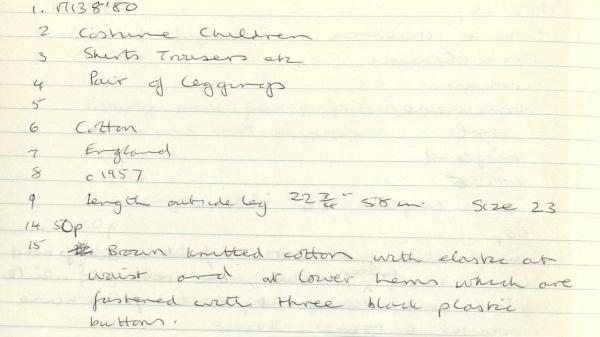 1. M138'80
2 Costume Children
3 Shirts Trousers etc
4 Pair of Leggings
5
6 Cotton
7 England
8 c1957
9 Length outside leg 22 3/4" 58 cm Size 23
14 50p
15 Brown knitted cotton with elastic at
waist and at lower hems which are
fastened with three black plastic
buttons.